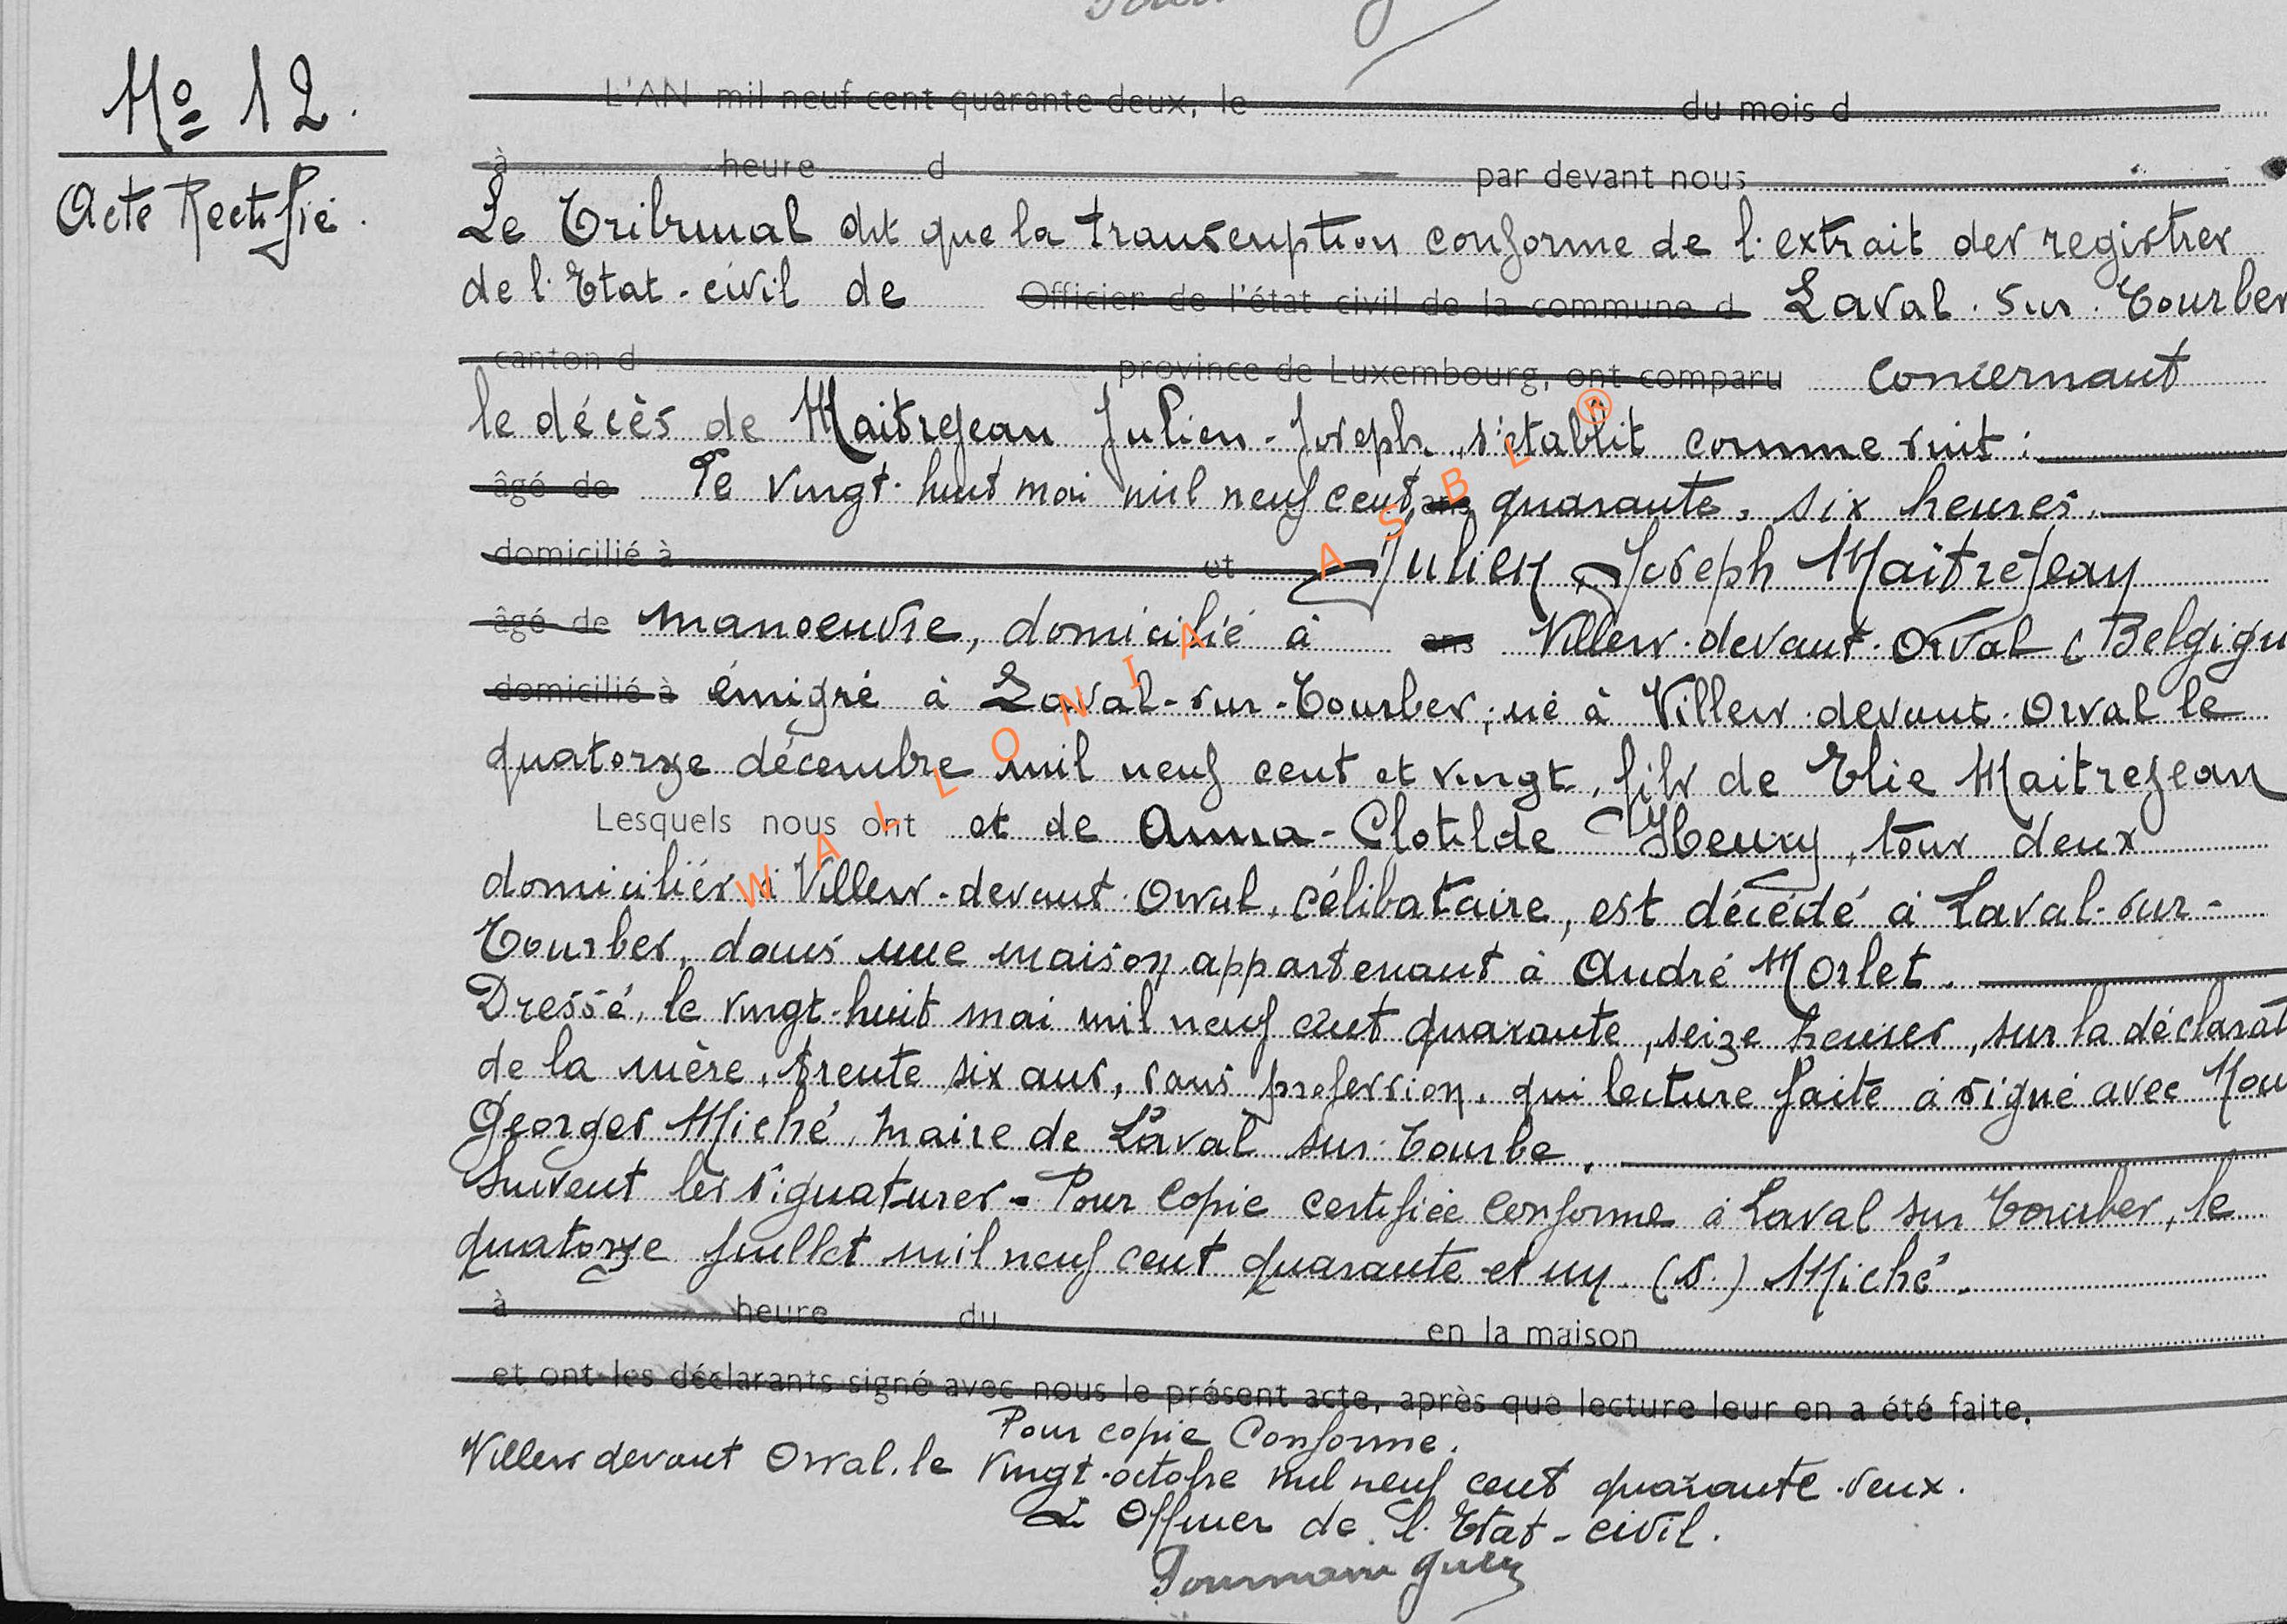 No 12.
Acte Rectifié.
L'AN mil neuf cent quarante-deux, le du mois d
à heure d par devant nous
Le Tribunal dit que la transcription conforme de l'extrait des registres
de l'Etat-civil de Officier de l'état civil de la commune d Laval-sur-Tourbes
canton d province de Luxembourg, ont comparu concernant
le décès de Maitrejean Julien-Joseph, s'établit comme suit :
âgé de Le vingt-huit mai mil neuf cent ans quarante, six heures.
domicilié à et Julien, Joseph Maitrejean
âgé de manoeuvre, domicilié à ans Villers-devant-Orval (Belgiqu
domicilié à émigré à Laval-sur-Tourbes, né à Villers-devant-Orval le
quatorze décembre mil neuf cent et vingt, fils de Elie Maitrejean
Lesquels nous ont et de Anna-Clotilde Henry, tous deux
domiciliés à Villers-devant-Orval, célibataire, est décédé à Laval-sur-
Tourbes, dans une maison appartenant à André Morlet.
Dressé, le vingt-huit mai mil neuf cent quarante, seize heures, sur la déclarat
de la mère, trente six ans, sans profession, qui lecture faite a signé avec Nou
Georges Miché, maire de Laval sur Tourbe.
Suivent les signatures - Pour copie certifiée conforme à Laval sur Tourbes, le
quatorze juillet mil neuf cent quarante et un. (s.) Miché.
à heure du en la maison
et ont les déclarants signé avec nous le présent acte, après que lecture leur en a été faite.
Pour copie Conforme.
Villers devant Orval, le vingt-octobre mil neuf cent quarante-deux.
L'Officier de l'Etat-civil.
WALLONIA ASBL®